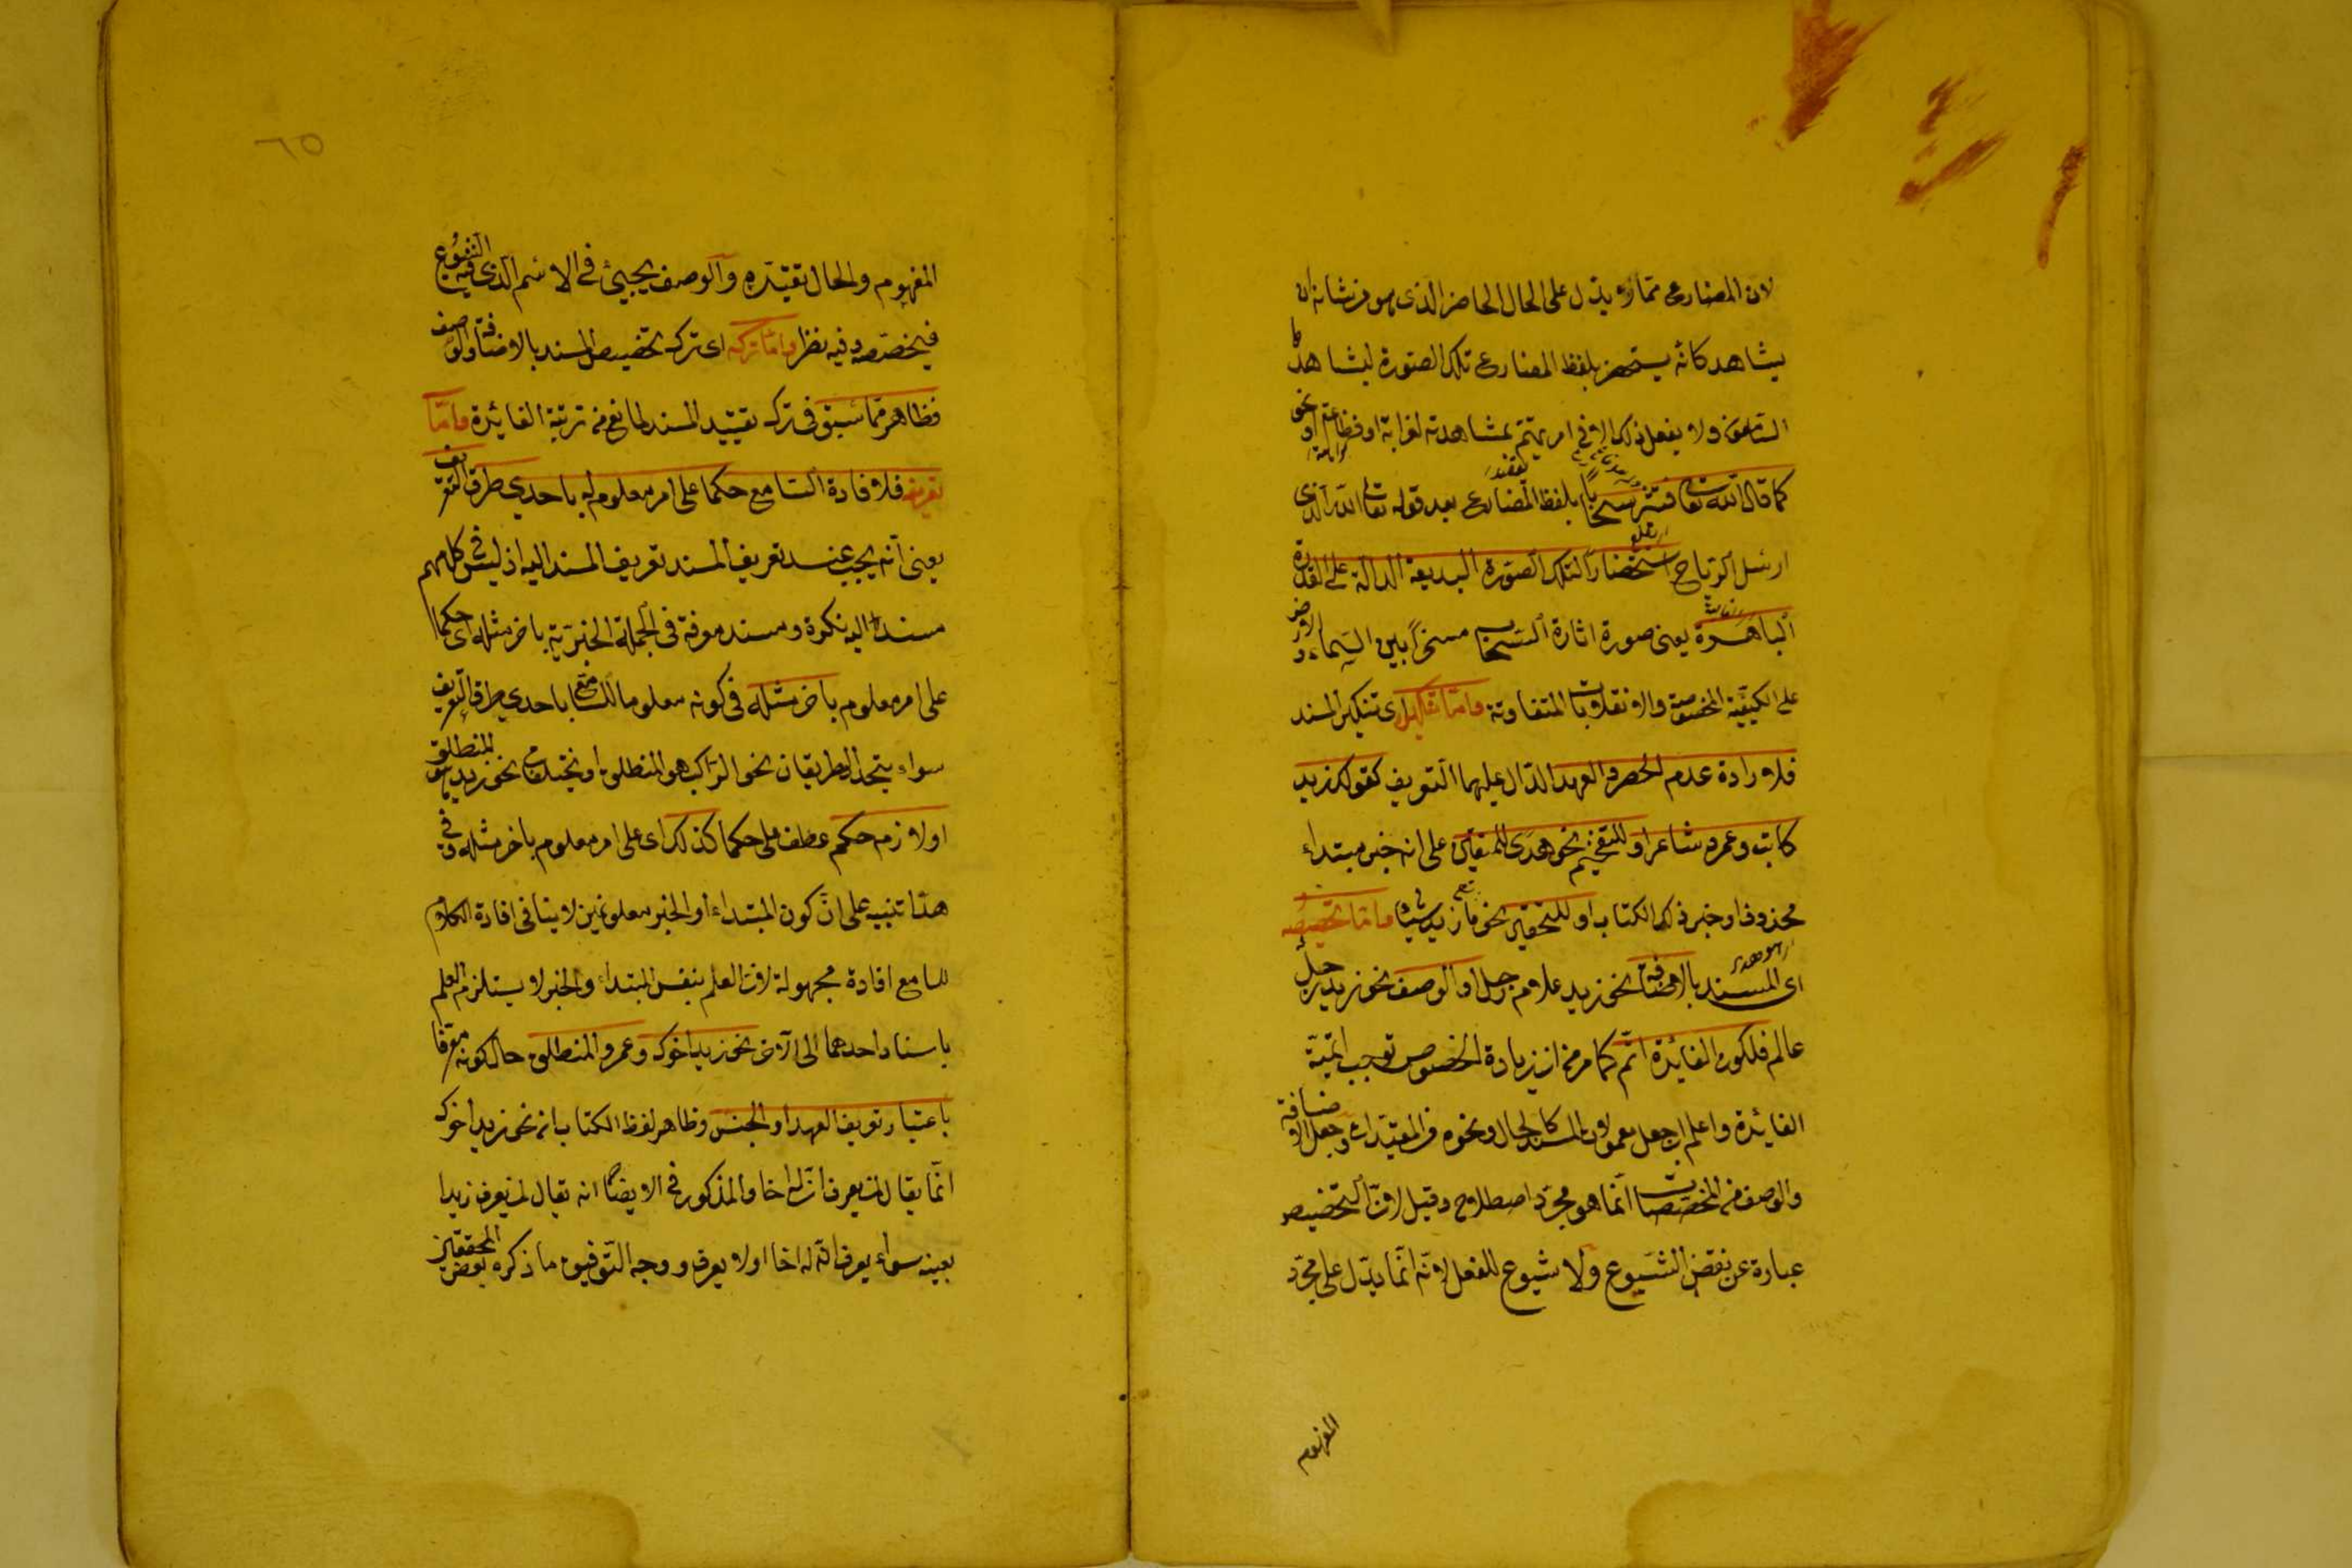 لان المضارع مما يدل على الحال الحاضر الذى هو من شانه ان
يشاهد كانه يستحضر بلفظ المضارع تلك الصورة ليشاهدها
السامعون ولا يفعل ذلك الا فى امر يهتم بمشاهدته لغرابة او فظاعة او نحو
كما قال الله تعا فتثير سحابًا بلفظ المضارع بعد قوله تعا الله الذى
ارسل الرياح استحضارا لتلك الصورة البديعة الدالة على القدرة
الباهرة يعنى صورة اثارة السحاب مسخرًا بين السماء والارض
على الكيفية المخصوصة والانقلابات المتفاوتة واما تنكيره اى تنكير المسند
فلارادة عدم الحصر والعهد الدال عليهما التعريف كقولك زيد
كاتب وعمرو شاعر او للتفخيم نحو هدى للمتقين على انه خبر مبتداء
محذوف او خبر ذلك الكتاب او للتحقير نحو ما زيد شيئا واما تخصيصه
اى المسند بالاضافة نحو زيد غلام رجل او الوصف نحو زيد رجل
عالم فلكون الفائدة اتم كما مر من ان زيادة الخصوص توجب اتمية
الفائدة واعلم ان جعل معمولات المسند كالحال ونحوه من المقيدات وجعل الاضافة
والوصف من المخصصات انما هو مجرد اصطلاح وقيل لان التخصيص
عبارة عن نقض الشيوع ولا شيوع للفعل لانه انما يدل على مجرد
المفهوم
٦٥
المفهوم والحال تقيده والوصف يجيئ فى الاسم الذى فيه الشيوع
فيخصصه وفيه نظر واما تركه اى ترك تخصيص المسند بالاضافة والوصف
فظاهر مما سبق فى ترك تقييد المسند لمانع من تربية الفائدة واما
تعريفه فلافادة السامع حكما على امر معلوم له باحدى طرق التعريف
يعنى انه يجب عند تعريف المسند تعريف المسند اليه اذ ليس فى كلامهم
مسند اليه نكرة ومسند معرفة فى الجملة الخبرية باخر مثله اى حكما
على امر معلوم باخر مثله فى كونه معلوما للسامع باحدى طرق التعريف
سواء يتحد الطريقان نحو الراكب هو المنطلق او يختلفان نحو زيد هو المنطلق
او لازم حكم عطف على حكما كذلك اى على امر معلوم باخر مثله وفى
هذا تنبيه على ان كون المبتداء والخبر معلومين لا ينافى افادة الكلام
للسامع افادة مجهولة لان العلم بنفس المبتداء والخبر لا يستلزم العلم
باسناد احدهما الى الاخر نحو زيد اخوك وعمرو المنطلق حال كونه معرفا
باعتبار تعريف العهد او الجنس وظاهر لفظ الكتاب ان نحو زيد اخوك
انما يقال لمن يعرف ان له اخا والمذكور فى الايضاح انه يقال لمن يعرف زيدا
بعينه سواء يعرف ان له اخا اولا يعرف ووجه التوفيق ما ذكره بعض المحققين